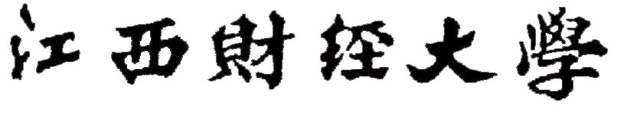 江西財经大學